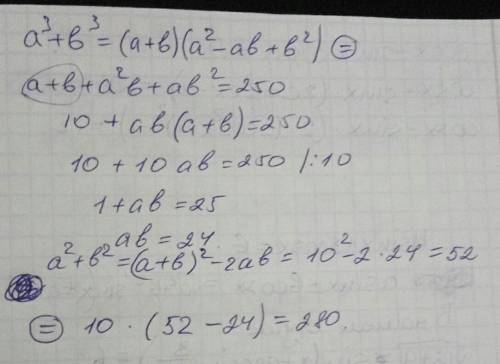 a³+b³=(a+b)(a²-ab+b²) =
a+b+a²b+ab²=250
10+ab(a+b)=250
10+10ab=250 /:10
1+ab=25
ab=24
a²+b²=(a+b)²-2ab=10²-2·24=52
= 10·(52-24)=280